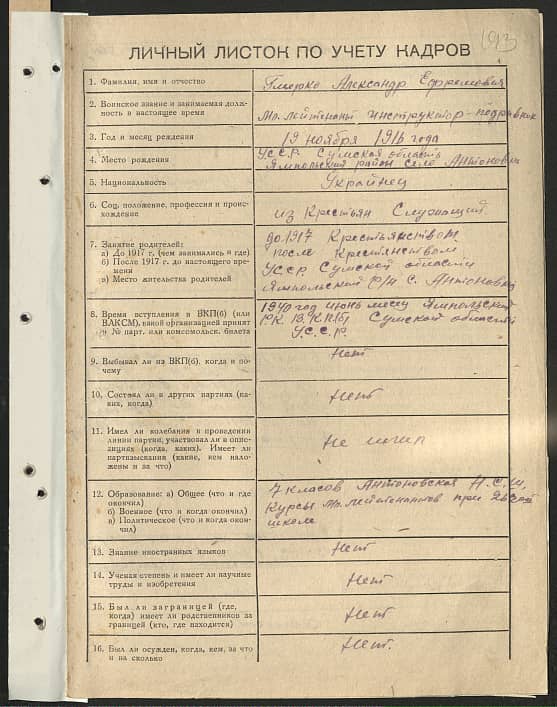 193
ЛИЧНЫЙ ЛИСТОК ПО УЧЕТУ КАДРОВ
1. Фамилия, имя и отчество
Гмирко Александр Ефремович
2. Воинское звание и занимаемая долж-
ность в настоящее время
Мл. лейтенант инструктор-подрывник
3. Год и месяц реждения
19 ноября 1916 года
4. Место рождения
УССР. Сумская область
Ямпольский район село Антоновка
5. Национальность
Украйнец
6. Соц. положение, профессия и проис-
хождение
из Крестьян Служащий
7. Занятие родителей:
а) До 1917 г. (чем занимались и где)
б) После 1917 г. до настоящего вре-
мени
в) Место жительства родителей
до 1917 Крестьянством
после Крестьянством
УССР. Сумской области
Ямпольский р/н с. Антоновка
8. Время вступления в ВКП(б) (или
ВЛКСМ), какой организацией принят
и № парт. или комсомольск. билета
1940 год июнь месяц Ямпольский
Р.К. В.К.П.(б) Сумской области
У.С.С.Р
9. Выбывал ли из ВКП(б), когда и по-
чему
Нет
10. Состоял ли в других партиях (ка-
ких, когда)
Нет
11. Имел ли колебания в проведении
линии партии, участвовал ли в оппо-
зициях (когда, каких). Имеет ли
партвзыскания (какие, кем нало-
жены и за что)
Не имел
12. Образование: а) Общее (что и где
окончил)
б) Военное (что и когда окончил)
в) Политическое (что и когда окон-
чил)
7 класов Антоновская Н.С.Ш.
Курсы мл. лейтенантов при
школе
13. Знание иностранных языков
Нет
14. Ученая степень и имеет ли научные
труды и изобретения
Нет
15. Был ли заграницей (где,
когда) имеет ли родственников за
границей (кто, где находится)
Нет
16. Был ли осужден, когда, кем, за что
и на сколько
Нет.